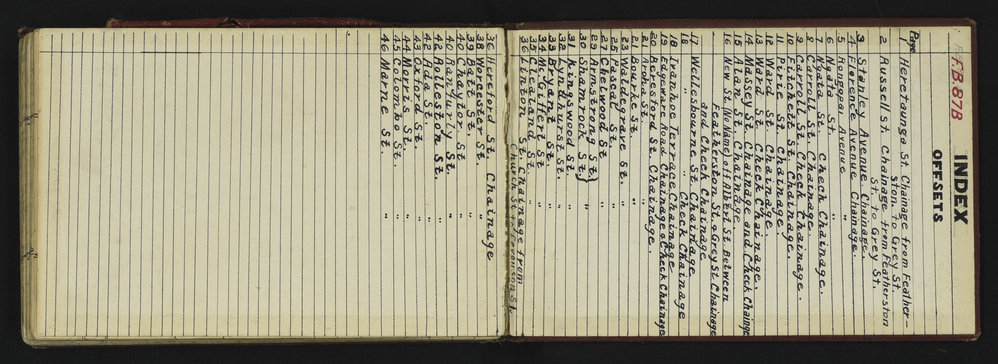 F.B. 87B
INDEX
OFFSETS
Page
1 Heretaunga St. Chainage from Feather-
ston. to Grey St.
2 Russell St. Chainage from Featherston
St. to Grey St.
3 Stanley Avenue Chainage.
4 Florence Avenue Chainage.
5 Rongopai Avenue "
6 Ngata St. "
7 Ngata St. Check Chainage.
8 Carroll St. Chainage.
9 Carroll St. Check Chainage.
10 Fitchett St. Chainage.
11 Pirie St. Chainage.
12 Ward St. Chainage.
13 Ward St. Check Chainage.
14 Massey St. Chainage and Check Chainage
15 Alan St. Chainage.
16 New St. (No Name) off Albert St. Between
Featherston St. & Grey St. Chainage
and Check Chainage
17 Wellesbourne St. Chainage
18 " " Check Chainage
18 Ivanhoe Terrace Chainage
19 Edgeware Road Chainage & Check Chainage
20 Beresford St. Chainage.
21 Aroha St. "
21 Bourke St. "
23 Waldegrave St. "
25 Pascal St. "
27 St.
29 Armstrong St. }
30 Shamrock St. } "
31 Kingswood St. "
32 Lyndhurst St. "
33 Bryant St. "
34 McGiffert St. "
35 St. "
36 Linton St. Chainage from
Church St. to St.
36 Hereford St. Chainage
38 Worcester St. "
39 Batt St. "
40 Chaytor St. "
40 Ranfurly St. "
42 Rolleston St. "
42 Ada St. "
43 Oxford St. "
44 Morris St. "
45 Colombo St. "
46 Marne St. "